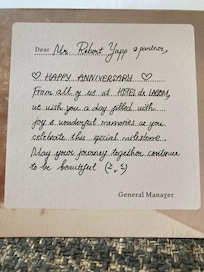 Dear Mr. Robert Yapp & partner,
♡ HAPPY ANNIVERSARY ♡
From all of us at HOTEL de LAROM,
we wish you a day filled with
joy & wonderful memories as you
celebrate this special milestone.
May your journey together continue
to be beautiful
General Manager